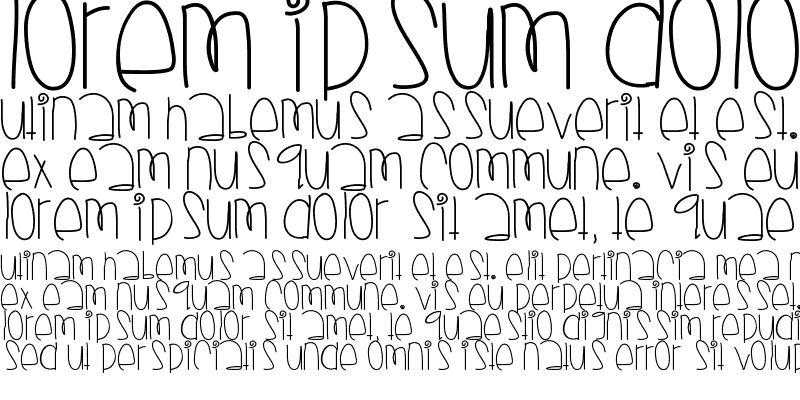 lorem ipsum dolo
utinam habemus assueverit et est.
ex eam nusquam commune. vis eu
lorem ipsum dolor sit amet, te quae
utinam habemus assueverit et est. elit pertinacia mea n
ex eam nusquam commune. vis eu perpetua interesset.
lorem ipsum dolor sit amet, te quaestio dignissim repudi
sed ut perspiciatis unde omnis iste natus error sit volup